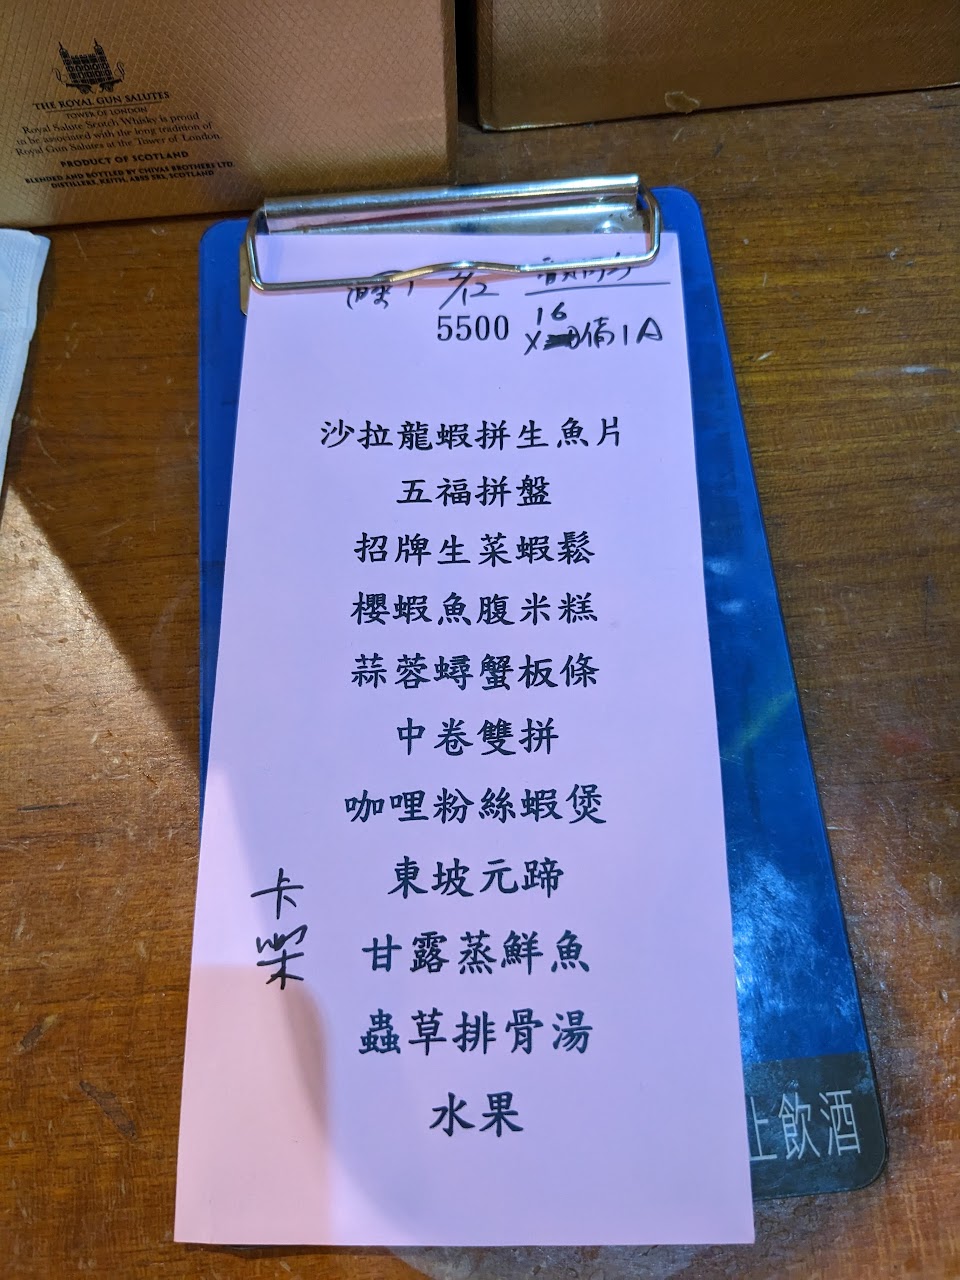 THE ROYAL GUN SALUTES
TOWER OF LONDON
Royal Salute Scotch Whisky is proud
to be associated with the long tradition of
Royal Gun Salutes at the Tower of London.
PRODUCT OF SCOTLAND
BLENDED AND BOTTLED BY CHIVAS BROTHERS LTD.
DISTILLERS, KEITH, AB55 5BS, SCOTLAND
5500
16
沙拉龍蝦拼生魚片
五福拼盤
招牌生菜蝦鬆
櫻蝦魚腹米糕
蒜蓉蟳蟹板條
中卷雙拼
咖哩粉絲蝦煲
東坡元蹄
甘露蒸鮮魚
蟲草排骨湯
水果
卡
上飲酒